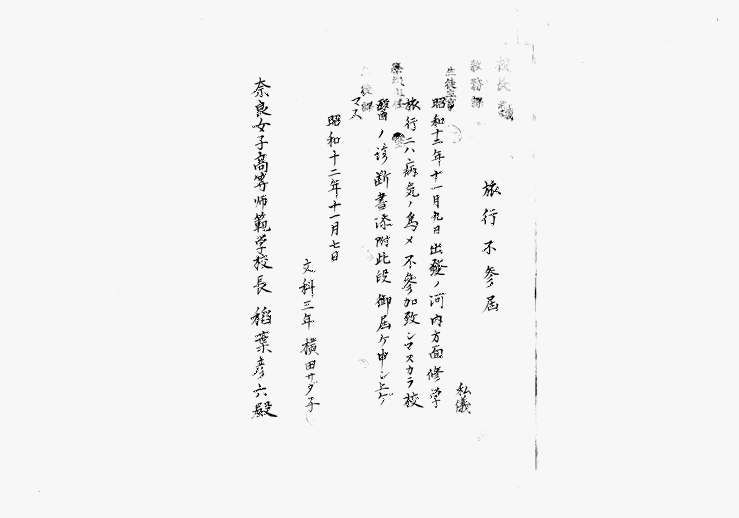 旅行不參届
私儀
昭和十二年十一月九日出發ノ河内方面修学
旅行ニハ病気ノ爲メ不參加致シマスカラ校
醫ノ診断書添附此段御届ケ申シ上ゲ
マス
昭和十二年十一月七日
文科三年 横田サダ子
奈良女子高等师範学校長 稻葉彦六殿
校長
教務課
生徒主事
生徒課